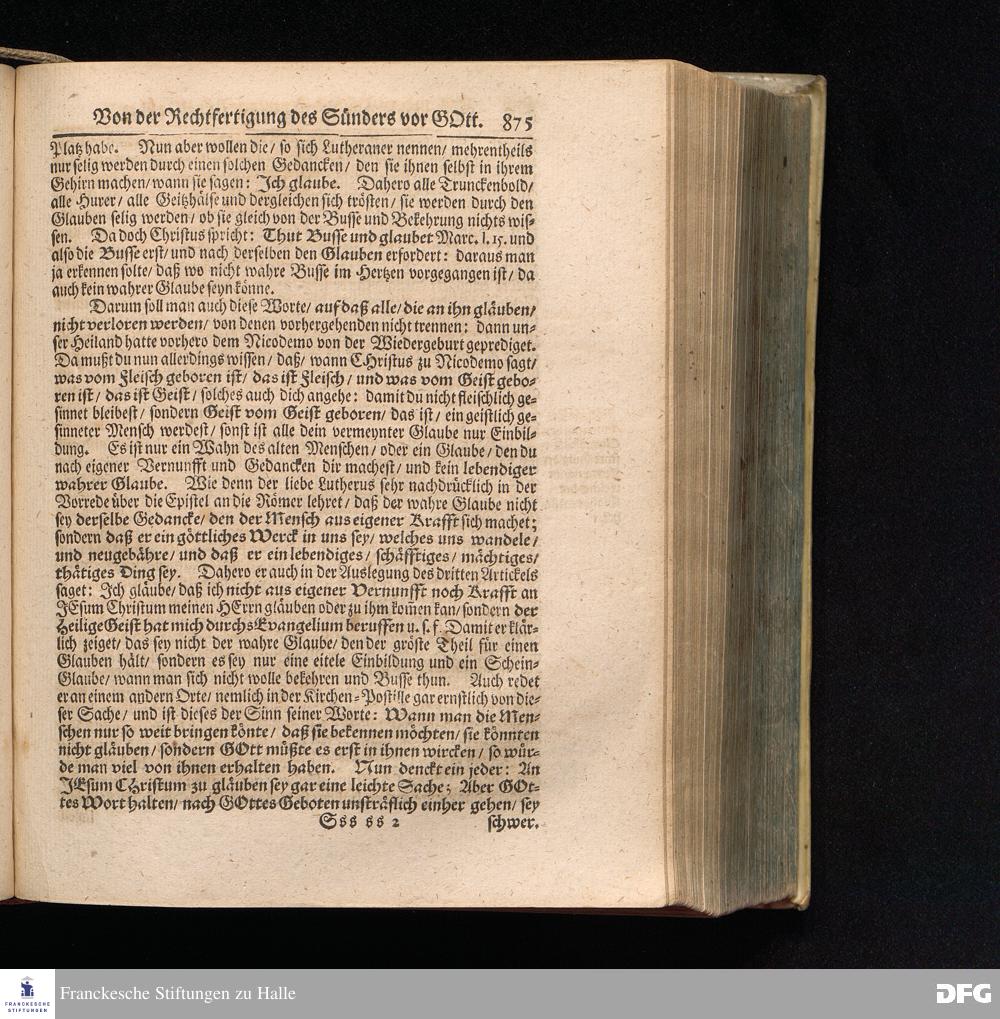 Von der Rechtfertigung des Sünders vor GOtt. 875
Platz habe. Nun aber wollen die/ so sich Lutheraner nennen/ mehrentheils
nur selig werden durch einen solchen Gedancken/ den sie ihnen selbst in ihrem
Gehirn machen/ wann sie sagen: Ich glaube. Dahero alle Trunckenbold/
alle Hurer/ alle Geitzhälse und dergleichen sich trösten/ sie werden durch den
Glauben selig werden/ ob sie gleich von der Busse und Bekehrung nichts wis-
sen. Da doch Christus spricht: Thut Busse und glaubet Marc. I. 15. und
also die Busse erst/ und nach derselben den Glauben erfordert: daraus man
ja erkennen solte/ daß wo nicht wahre Busse im Hertzen vorgegangen ist/ da
auch kein wahrer Glaube seyn könne.
Darum soll man auch diese Worte/ auf daß alle/ die an ihn gläuben/
nicht verloren werden/ von denen vorhergehenden nicht trennen: dann un-
ser Heiland hatte vorhero dem Nicodemo von der Wiedergeburt geprediget.
Da mußt du nun allerdings wissen/ daß/ wann CHristus zu Nicodemo sagt/
was vom Fleisch geboren ist/ das ist Fleisch/ und was vom Geist gebo-
ren ist/ das ist Geist/ solches auch dich angehe: damit du nicht fleischlich ge-
sinnet bleibest/ sondern Geist vom Geist geboren/ das ist/ ein geistlich ge-
sinneter Mensch werdest/ sonst ist alle dein vermeynter Glaube nur Einbil-
dung. Es ist nur ein Wahn des alten Menschen/ oder ein Glaube/ den du
nach eigener Vernunfft und Gedancken dir machest/ und kein lebendiger
wahrer Glaube. Wie denn der liebe Lutherus sehr nachdrücklich in der
Vorrede über die Epistel an die Römer lehret/ daß der wahre Glaube nicht
sey derselbe Gedancke/ den der Mensch aus eigener Krafft sich machet;
sondern daß er ein göttliches Werck in uns sey/ welches uns wandele/
und neugebähre/ und daß er ein lebendiges/ schäfftiges/ mächtiges/
thätiges Ding sey. Dahero er auch in der Auslegung des dritten Artickels
saget: Ich gläube/ daß ich nicht aus eigener Vernunfft noch Krafft an
JEsum Christum meinen HErrn gläuben oder zu ihm kom̃en kan/ sondern der
Heilige Geist hat mich durchs Evangelium beruffen u. s. f. Damit er klär-
lich zeiget/ das sey nicht der wahre Glaube/ den der gröste Theil für einen
Glauben hält/ sondern es sey nur eine eitele Einbildung und ein Schein-
Glaube/ wann man sich nicht wolle bekehren und Busse thun. Auch redet
er an einem andern Orte/ nemlich in der Kirchen-Postille gar ernstlich von die-
ser Sache/ und ist dieses der Sinn seiner Worte: Wann man die Men-
schen nur so weit bringen könte/ daß sie bekennen möchten/ sie könnten
nicht gläuben/ sondern GOtt müßte es erst in ihnen wircken/ so wür-
de man viel von ihnen erhalten haben. Nun denckt ein jeder: An
JEsum CHristum zu gläuben sey gar eine leichte Sache; Aber GOt-
tes Wort halten/ nach GOttes Geboten unsträflich einher gehen/ sey
Sss ss 2 schwer.
FRANCKESCHE
STIFTUNGEN
Franckesche Stiftungen zu Halle
DFG